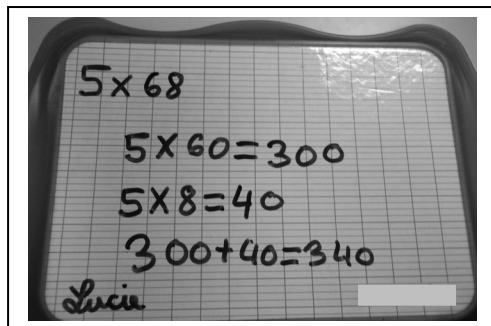 5×68
5×60=300
5×8=40
300+40=340
Lucie